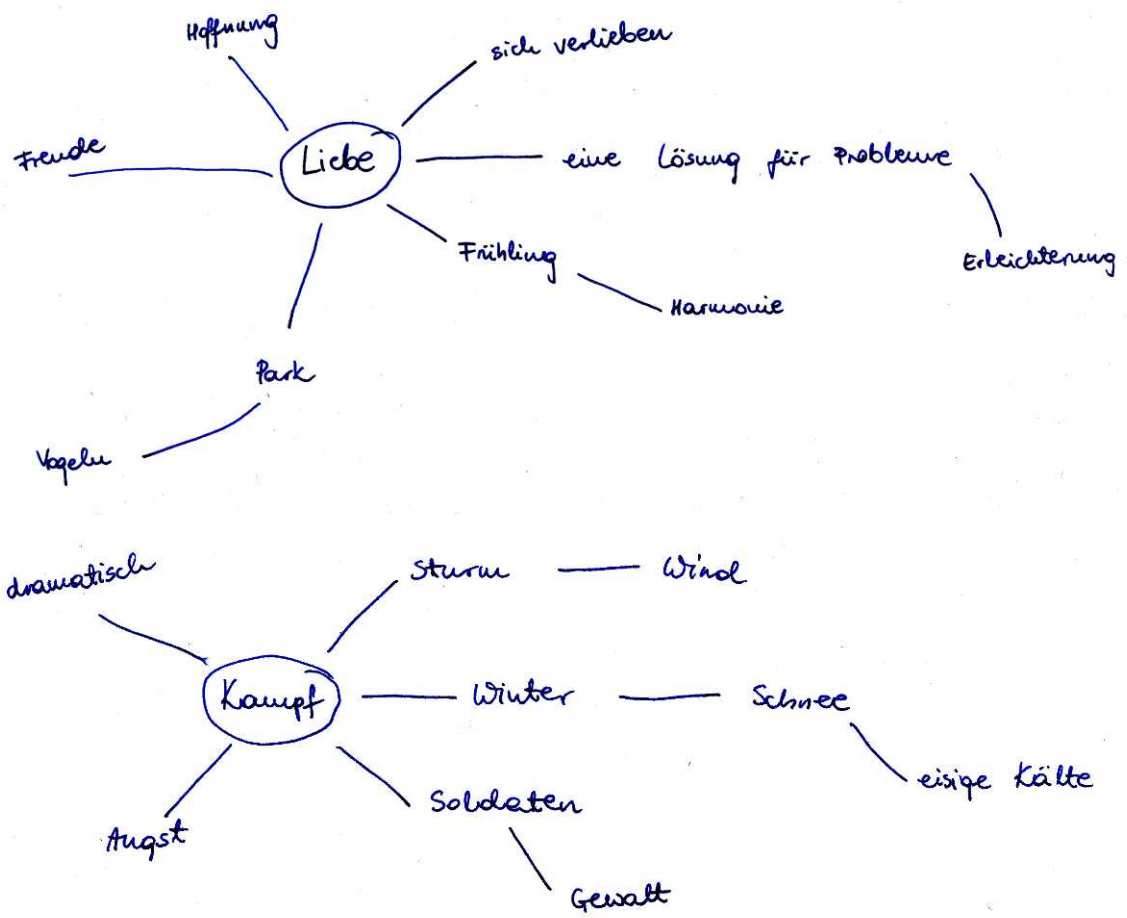 Hoffnung
sich verlieben
Freude
Liebe
eine Lösung für Probleme
Frühling
Erleichterung
Harmonie
Park
Vogeln
dramatisch
Sturm
Wind
Kampf
Winter
Schnee
eisige Kälte
Soldaten
Angst
Gewalt